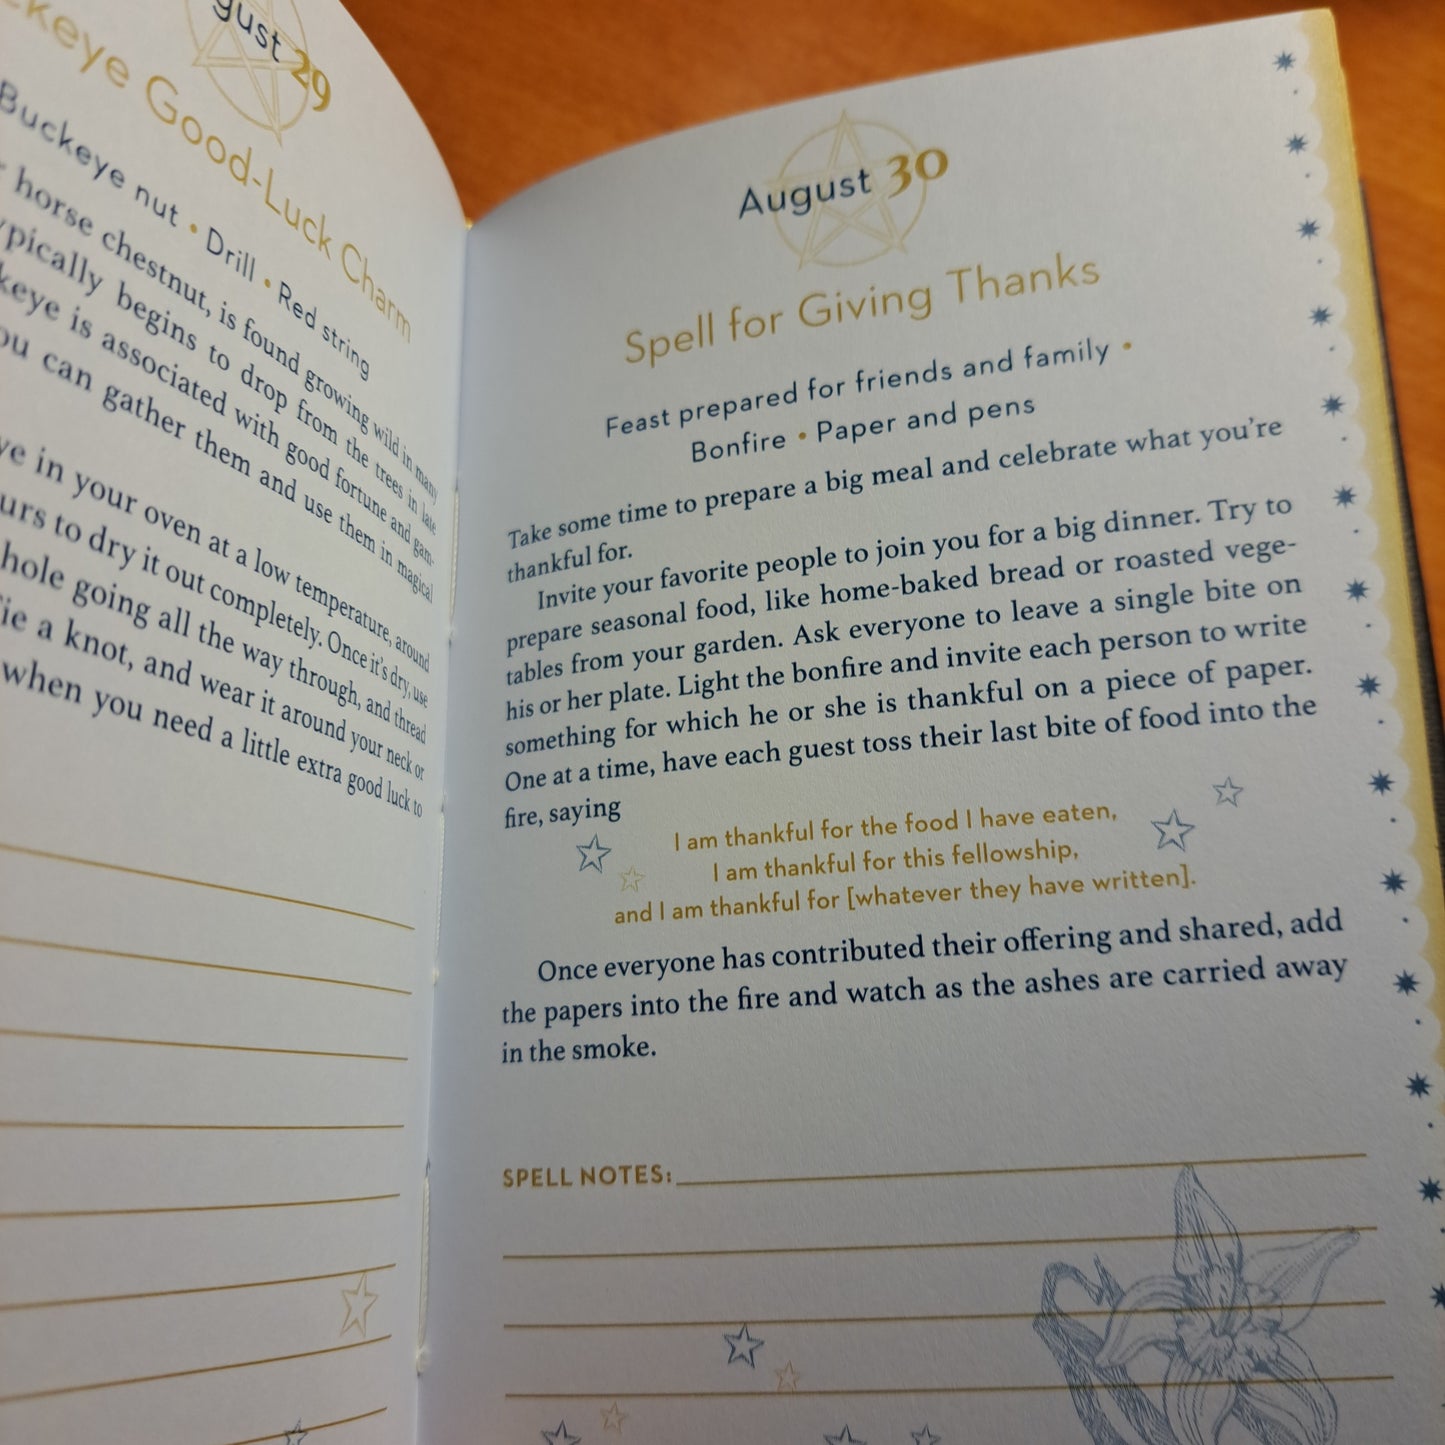 gust 29
ckeye Good-Luck Charm
Buckeye nut • Drill • Red string
horse chestnut, is found growing wild in many
ypically begins to drop from the trees in late
keye is associated with good fortune and gam-
ou can gather them and use them in magical
ye in your oven at a low temperature, around
urs to dry it out completely. Once it's dry, use
hole going all the way through, and thread
ie a knot, and wear it around your neck or
when you need a little extra good luck to
August 30
Spell for Giving Thanks
Feast prepared for friends and family •
Bonfire • Paper and pens
Take some time to prepare a big meal and celebrate what you're
thankful for.
Invite your favorite people to join you for a big dinner. Try to
prepare seasonal food, like home-baked bread or roasted vege-
tables from your garden. Ask everyone to leave a single bite on
his or her plate. Light the bonfire and invite each person to write
something for which he or she is thankful on a piece of paper.
One at a time, have each guest toss their last bite of food into the
fire, saying
I am thankful for the food I have eaten,
I am thankful for this fellowship,
and I am thankful for [whatever they have written].
Once everyone has contributed their offering and shared, add
the papers into the fire and watch as the ashes are carried away
in the smoke.
SPELL NOTES: